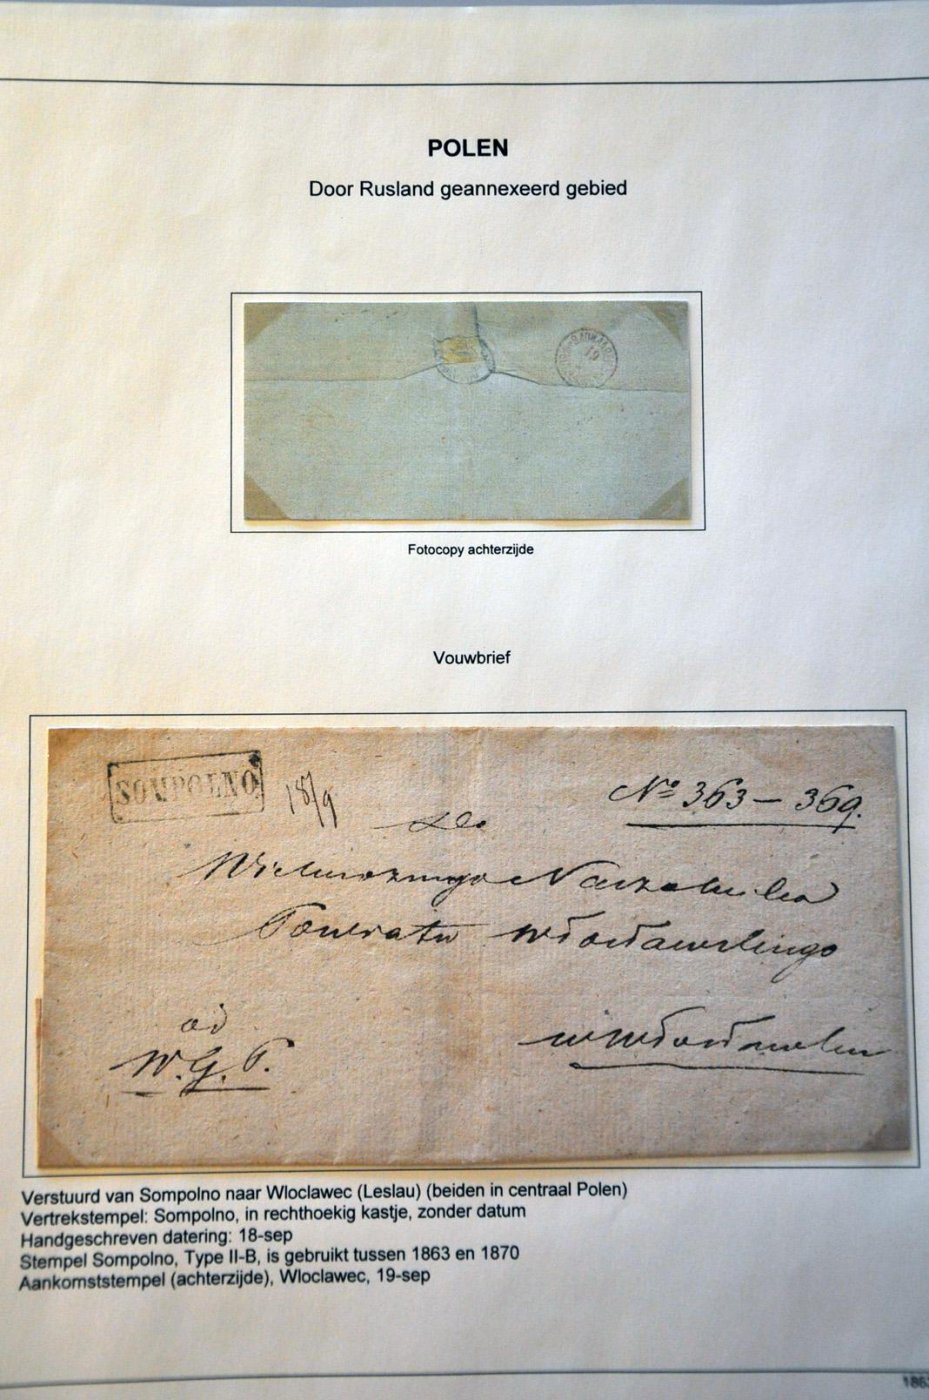 POLEN
Door Rusland geannexeerd gebied
19
Fotocopy achterzijde
Vouwbrief
SOMPOLNO
18/9
No 363 – 369.
Do
Wielmożnego Naczelnika
Powiatu Włocławskiego
od
W. G. P.
w Włocławku
Verstuurd van Sompolno naar Wloclawec (Leslau) (beiden in centraal Polen)
Vertrekstempel: Sompolno, in rechthoekig kastje, zonder datum
Handgeschreven datering: 18-sep
Stempel Sompolno, Type II-B, is gebruikt tussen 1863 en 1870
Aankomststempel (achterzijde), Wloclawec, 19-sep